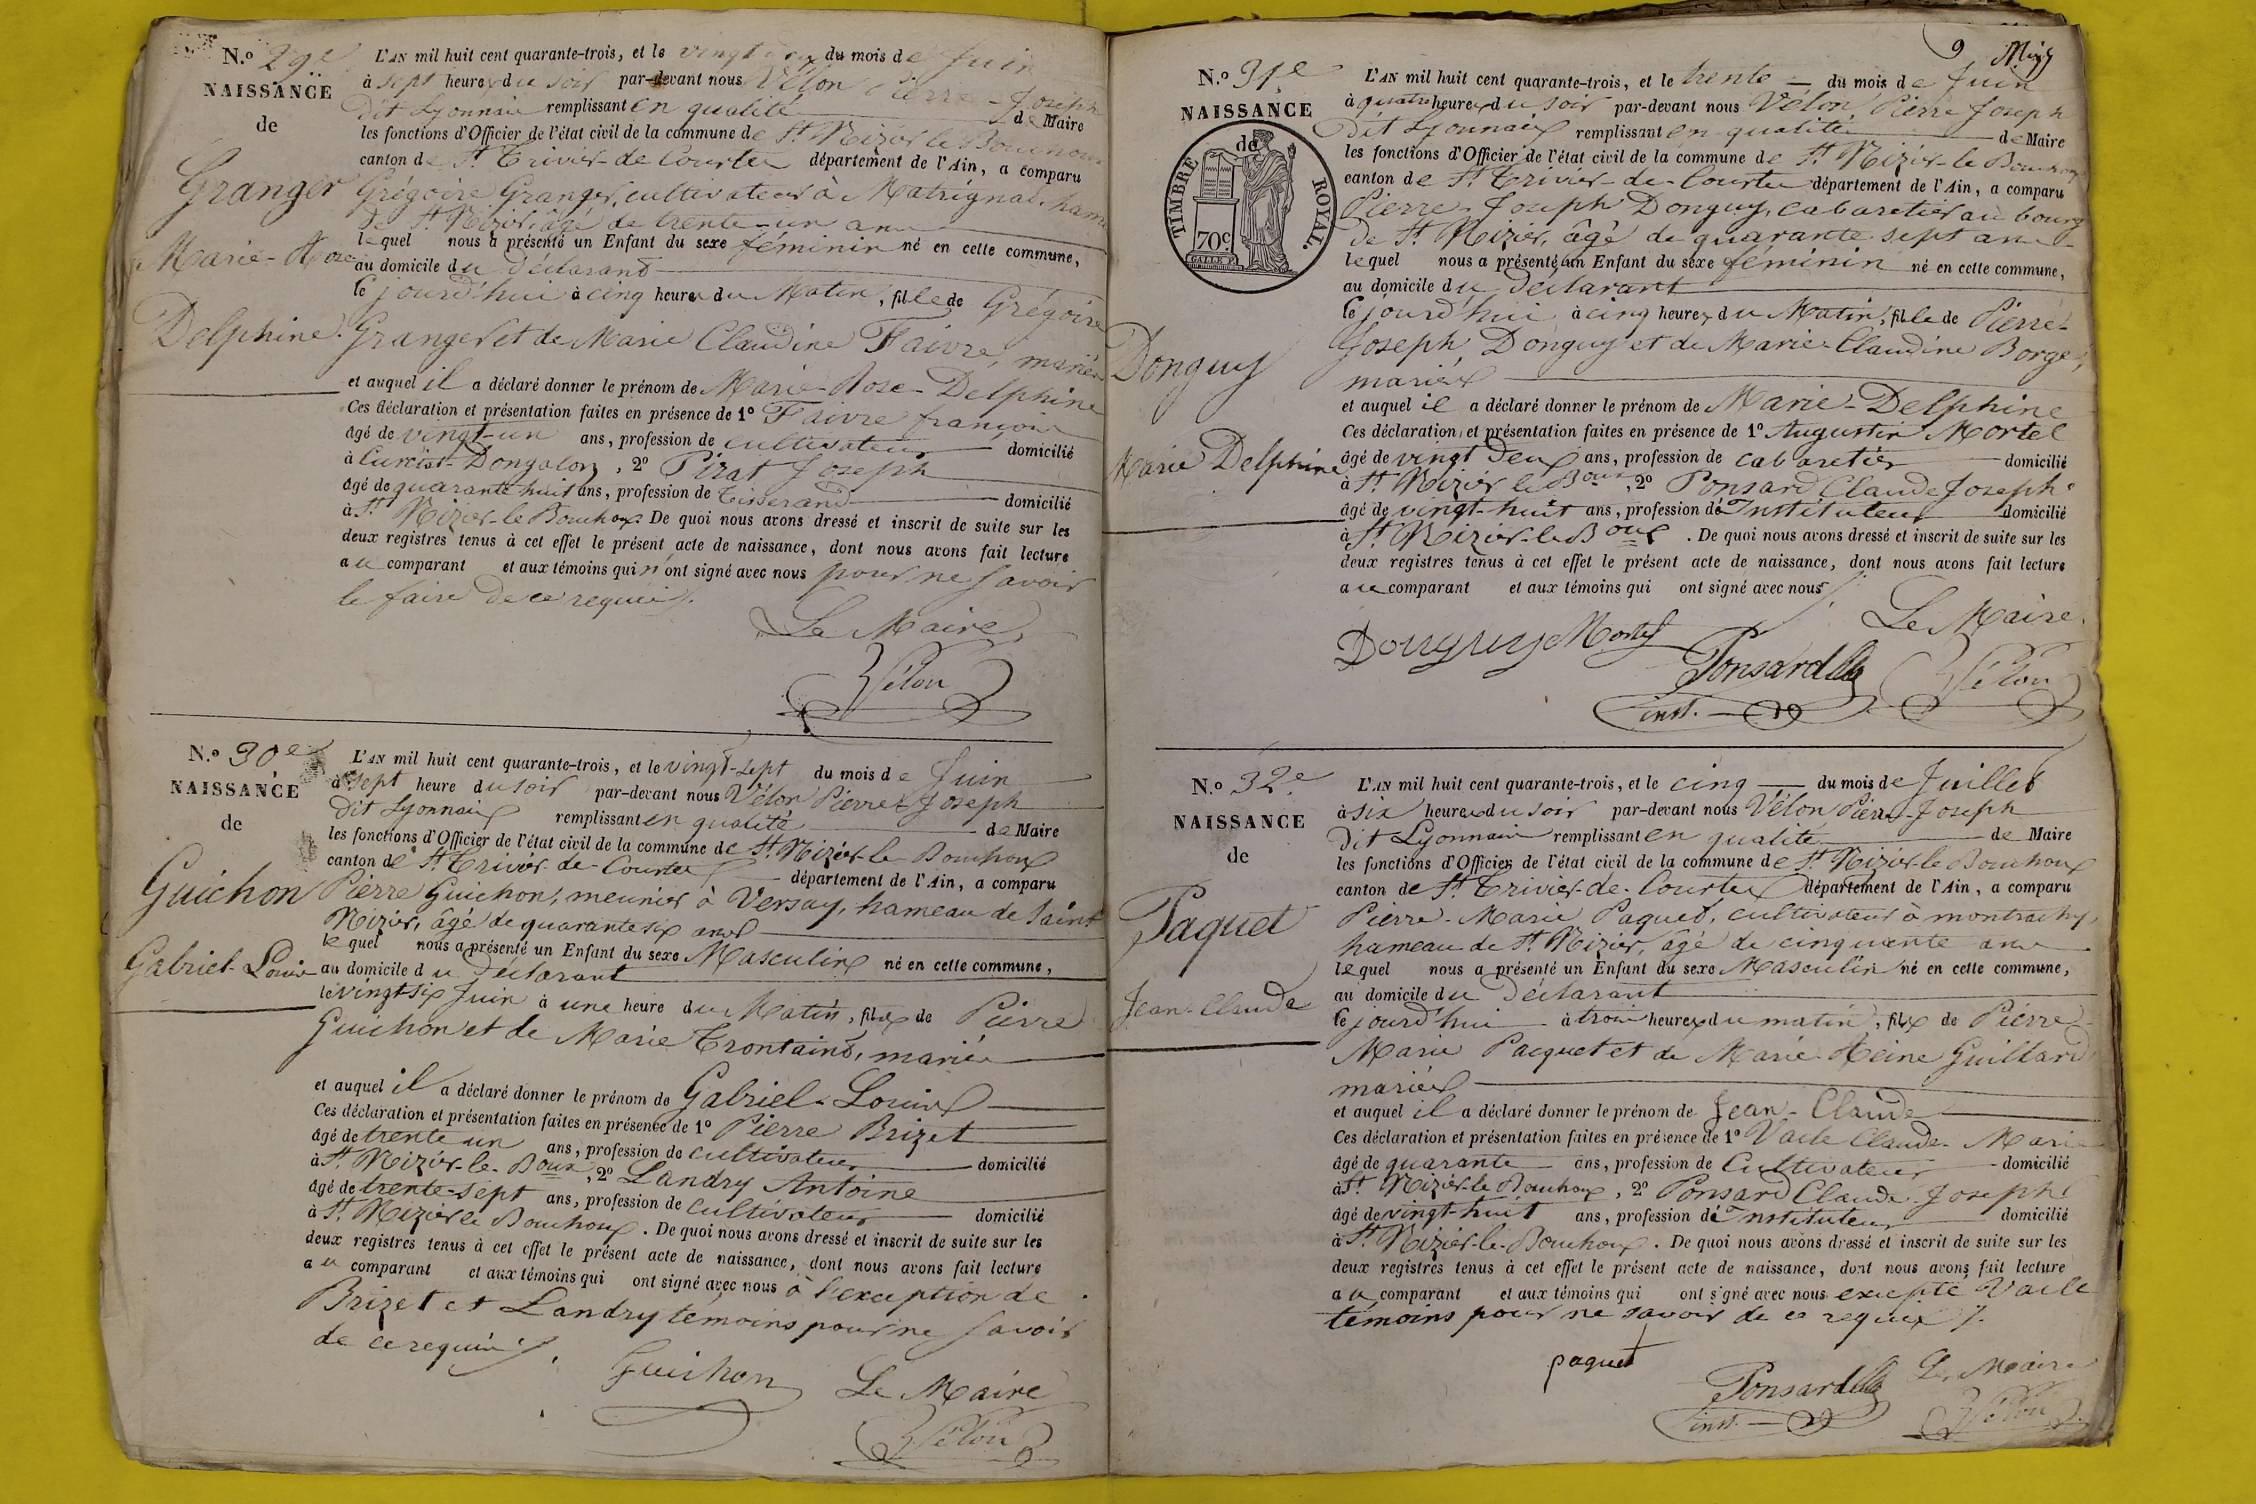 N.º 29e
NAISSANCE
de
Granger
Marie-Rose
Delphine.
L'AN mil huit cent quarante-trois, et le vingt du mois de Juin
à sept heures du soir par-devant nous Vélon Pierre-Joseph
dit Lyonnais remplissant en qualité de Maire
les fonctions d'Officier de l'état civil de la commune de St. Nizier le Bouchoux
canton de St. Trivier-de-Courtes département de l'Ain, a comparu
Grégoire Granger, cultivateur à Matrignat, ham
de St. Nizier, âgé de trente-un ans
lequel nous a présenté un Enfant du sexe féminin né en cette commune,
au domicile du déclarant
le jourd'hui à cinq heures du Matin, fille de Grégoire
Granger et de Marie Claudine Faivre, mariés
et auquel il a déclaré donner le prénom de Marie-Rose-Delphine
Ces déclaration et présentation faites en présence de 1º Faivre françois
âgé de vingt-un ans, profession de cultivateur domicilié
à Curciat-Dongalon, 2º Pirat Joseph
âgé de quarante huit ans, profession de Tisserand domicilié
à St. Nizier-le Bouchoux. De quoi nous avons dressé et inscrit de suite sur les
deux registres tenus à cet effet le présent acte de naissance, dont nous avons fait lecture
au comparant et aux témoins qui n'ont signé avec nous pour ne savoir
le faire de ce requis ./.
Le Maire
Vélon
N.º 30e
NAISSANCE
de
Guichon
Gabriel-Louis
L'AN mil huit cent quarante-trois, et le vingt-sept du mois de Juin
à sept heure du soir par-devant nous Vélon Pierre-Joseph
dit Lyonnais remplissant en qualité de Maire
les fonctions d'Officier de l'état civil de la commune de St. Nizier-le Bouchoux
canton de St. Trivier-de-Courtes département de l'Ain, a comparu
Pierre Guichon, meunier à Versay, hameau de Saint
Nizier, âgé de quarante six ans
lequel nous a présenté un Enfant du sexe Masculin né en cette commune,
au domicile du déclarant
le vingt-six Juin à une heure du Matin, fils de Pierre
Guichon et de Marie Trontaint, mariés
et auquel il a déclaré donner le prénom de Gabriel-Louis
Ces déclaration et présentation faites en présence de 1º Pierre Brizet
âgé de trente un ans, profession de cultivateur domicilié
à St. Nizier-le-Boux, 2º Landry Antoine
âgé de trente-sept ans, profession de cultivateur domicilié
à St. Nizier le Bouchoux. De quoi nous avons dressé et inscrit de suite sur les
deux registres tenus à cet effet le présent acte de naissance, dont nous avons fait lecture
au comparant et aux témoins qui ont signé avec nous à l'exception de
Brizet et Landry témoins pour ne savoir
de ce requis ./.
Guichon Le Maire
Vélon
9
N.º 31e
NAISSANCE
de
TIMBRE ROYAL.
70c.
Donguy
Marie Delphine
L'AN mil huit cent quarante-trois, et le trente du mois de Juin
à quatre heures du soir par-devant nous Vélon, Pierre Joseph
dit Lyonnais remplissant en qualité de Maire
les fonctions d'Officier de l'état civil de la commune de St. Nizier-le Bouchoux
canton de St. Trivier-de-Courtes département de l'Ain, a comparu
Pierre-Joseph Donguy, cabaretier au bourg
de St. Nizier, âgé de quarante sept ans
lequel nous a présenté un Enfant du sexe féminin né en cette commune,
au domicile du déclarant
le jourd'hui à cinq heures du Matin, fille de Pierre-
Joseph, Donguy et de Marie-Claudine Borge,
mariés
et auquel il a déclaré donner le prénom de Marie-Delphine
Ces déclaration et présentation faites en présence de 1º Augustin Mortel
âgé de vingt deux ans, profession de cabaretier domicilié
à St. Nizier le Boux, 2º Ponsard Claude Joseph
âgé de vingt-huit ans, profession d'Instituteur domicilié
à St. Nizier-le-Boux. De quoi nous avons dressé et inscrit de suite sur les
deux registres tenus à cet effet le présent acte de naissance, dont nous avons fait lecture
au comparant et aux témoins qui ont signé avec nous ./.
Le Maire
Donguy Mortel Ponsard Vélon
inst.
N.º 32e
NAISSANCE
de
Paquet
Jean-Claude
L'AN mil huit cent quarante-trois, et le cinq du mois de Juillet
à six heures du soir par-devant nous Vélon Pierre-Joseph
dit Lyonnais remplissant en qualité de Maire
les fonctions d'Officier de l'état civil de la commune de St. Nizier le Bouchoux
canton de St. Trivier-de-Courtes département de l'Ain, a comparu
Pierre-Marie Paquet, cultivateur à montrachy,
hameau de St. Nizier, âgé de cinquante ans
lequel nous a présenté un Enfant du sexe Masculin né en cette commune,
au domicile du déclarant
le jourd'hui à trois heures du matin, fils de Pierre-
Marie Pacquet et de Marie-Reine Guillard
mariés
et auquel il a déclaré donner le prénom de Jean-Claude
Ces déclaration et présentation faites en présence de 1º Vaile Claude-Marie
âgé de quarante ans, profession de Cultivateur domicilié
à St. Nizier-le Bouchoux, 2º Ponsard Claude-Joseph
âgé de vingt-huit ans, profession d'Instituteur domicilié
à St. Nizier-le-Bouchoux. De quoi nous avons dressé et inscrit de suite sur les
deux registres tenus à cet effet le présent acte de naissance, dont nous avons fait lecture
au comparant et aux témoins qui ont signé avec nous excepté Vaile
témoins pour ne savoir de ce requis ./.
paquet Ponsard Le Maire
inst. Vélon